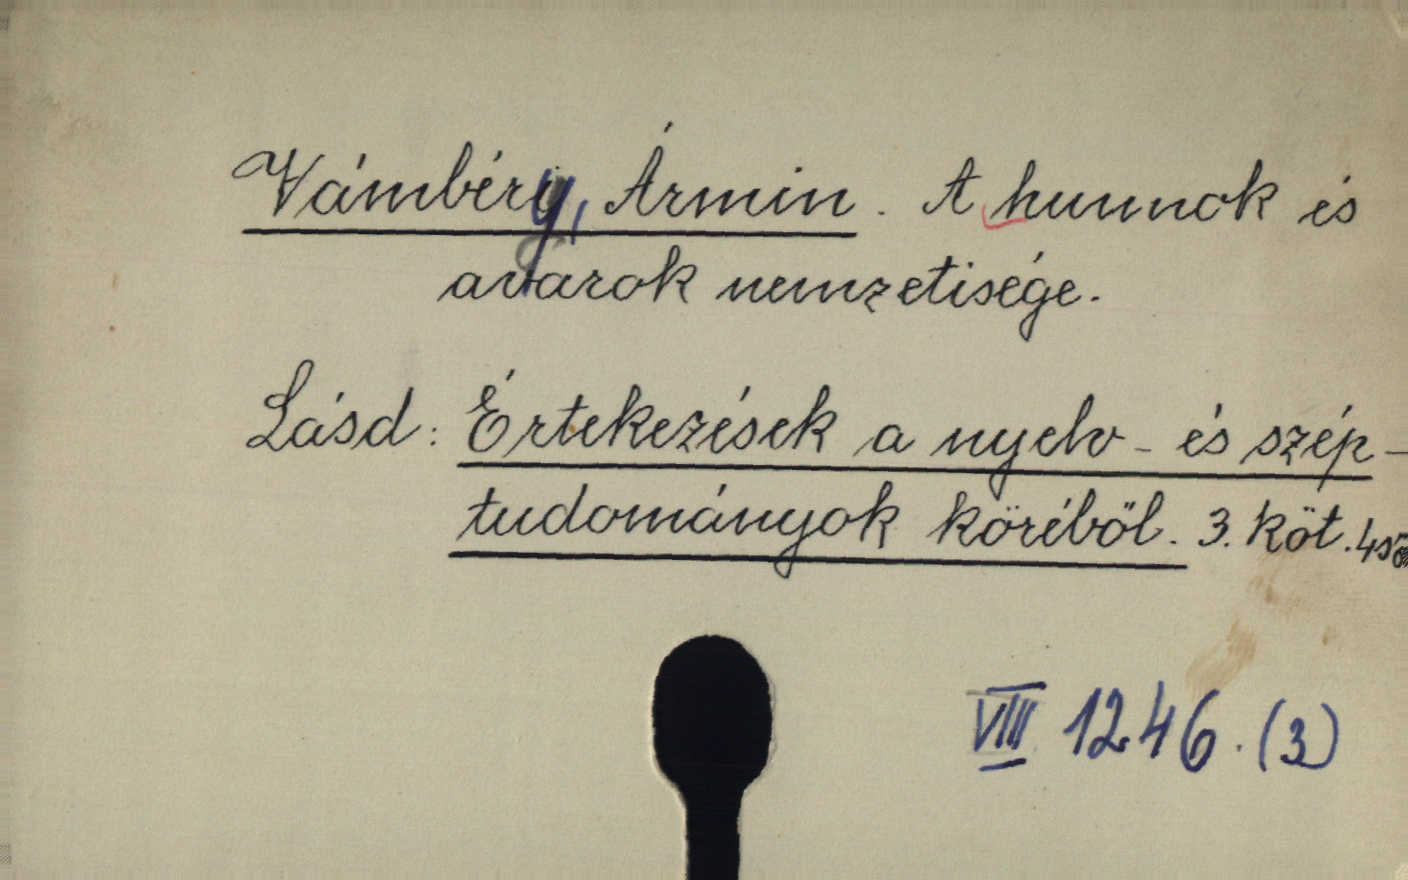 Vámbéry, Ármin. A hunnok és
avarok nemzetisége.
Lásd: Értekezések a nyelv- és szép-
tudományok köréből. 3. köt.
VIII 1246.(3)